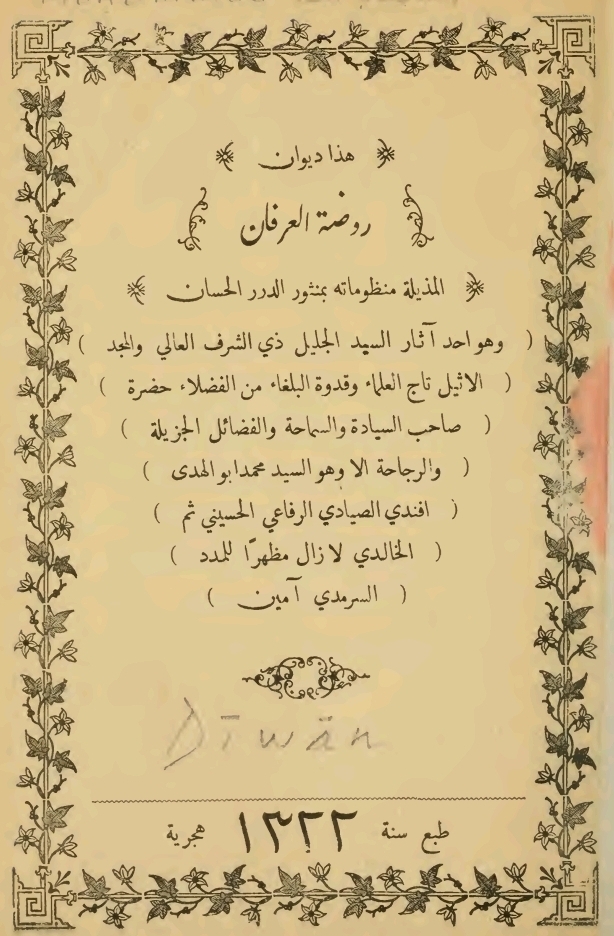 هذا ديوان
روضة العرفان
المذيلة منظوماته بمنثور الدرر الحسان
( وهو احد آثار السيد الجليل ذي الشرف العالي والمجد )
( الاثيل تاج العلماء وقدوة البلغاء من الفضلاء حضرة )
( صاحب السيادة والسماحة والفضائل الجزيلة )
( والرجاحة الا وهو السيد محمد ابو الهدى )
( افندي الصيادي الرفاعي الحسيني ثم )
( الخالدي لا زال مظهرًا للمدد )
( السرمدي آمين )
Dīwān
طبع سنة ١٣٢٢ هجرية